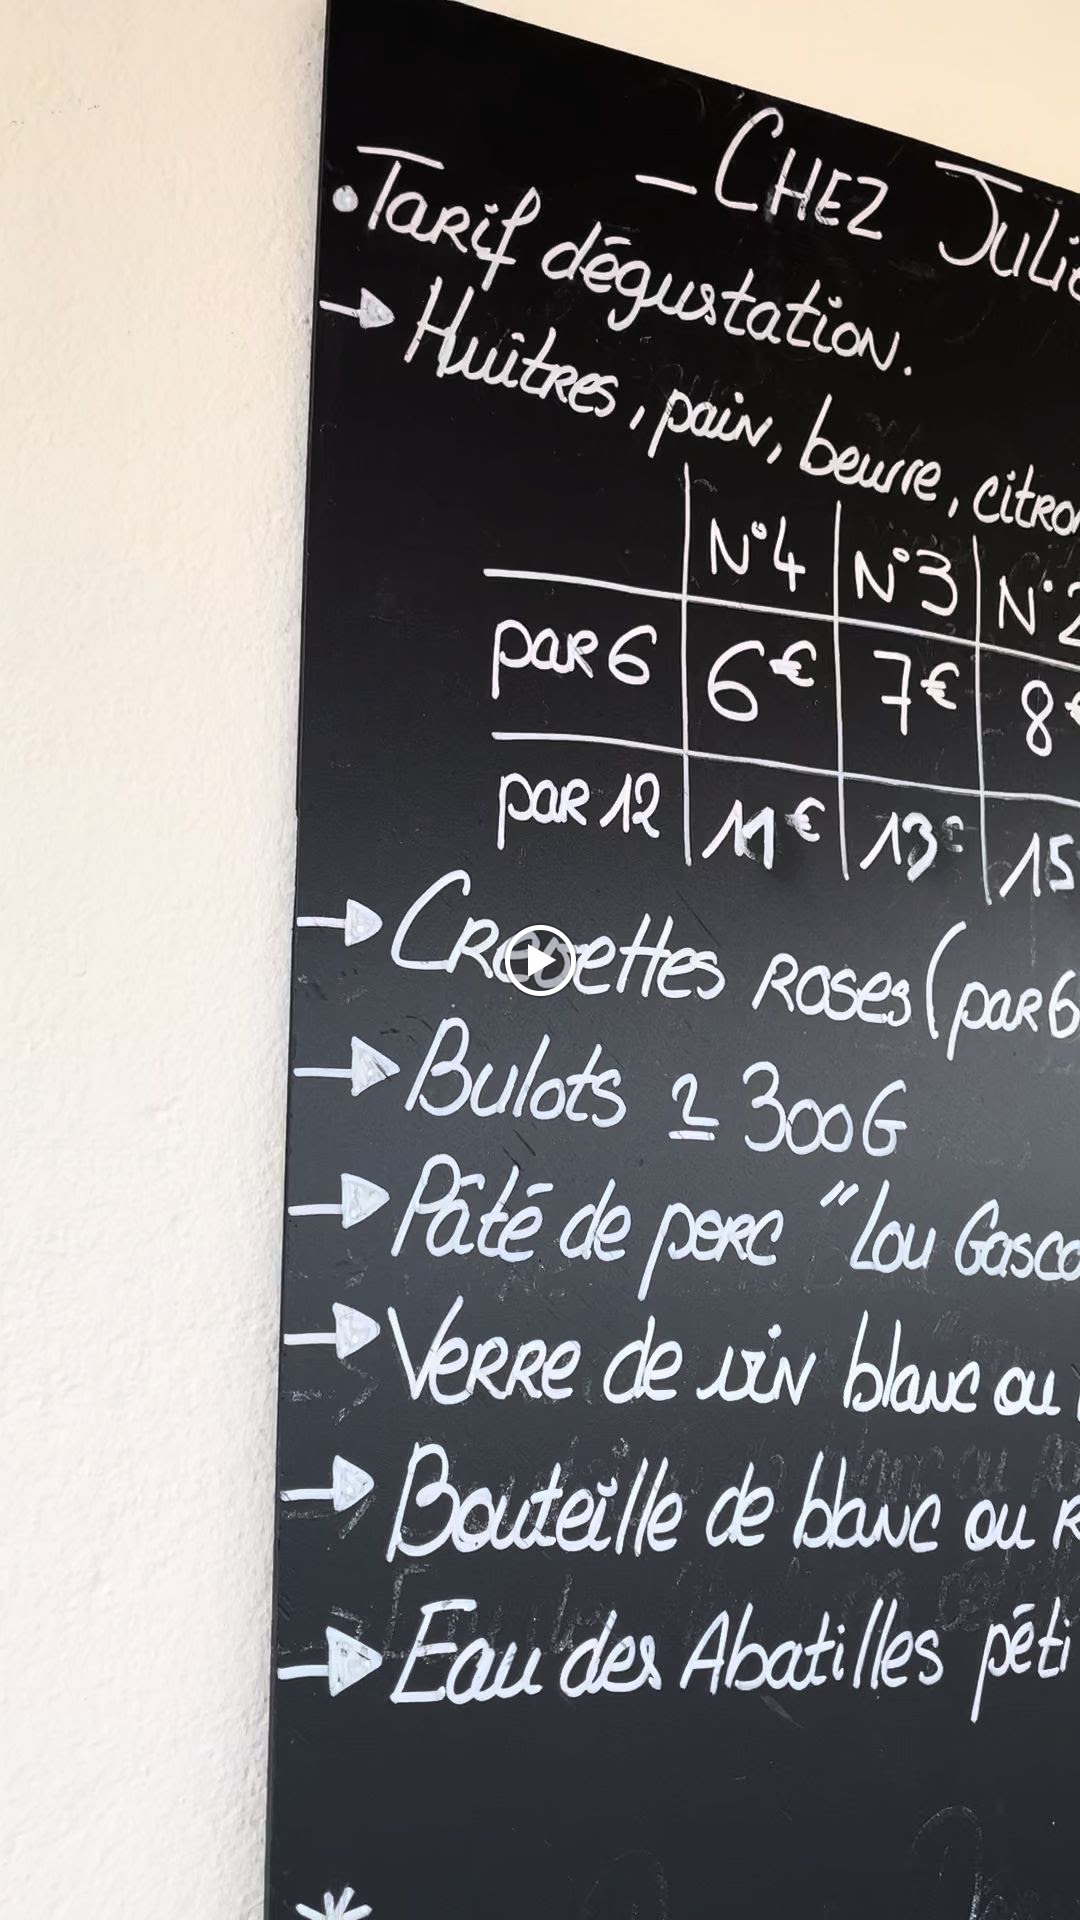 - CHEZ Julie
• Tarif dégustation.
→ Huîtres, pain, beurre, citron
N°4 N°3 N°2
par 6 6€ 7€ 8€
par 12 11€ 13€ 15
→ Crevettes roses (par 6
→ Bulots ± 300G
→ Pâté de porc "Lou Gasco
→ Verre de vin blanc ou
→ Bouteille de blanc ou R
→ Eau des Abatilles péti
*